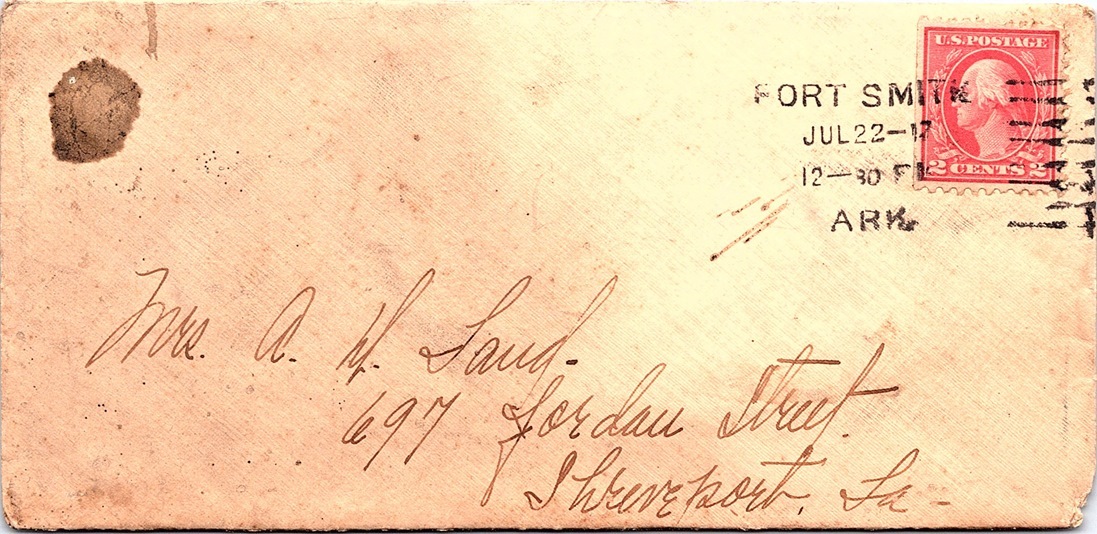 U.S. POSTAGE
2 CENTS 2
FORT SMITH
JUL 22-17
12-30 PM
ARK.
Mrs. A. H. Land.
697 Jordan Street.
Shreveport, La-